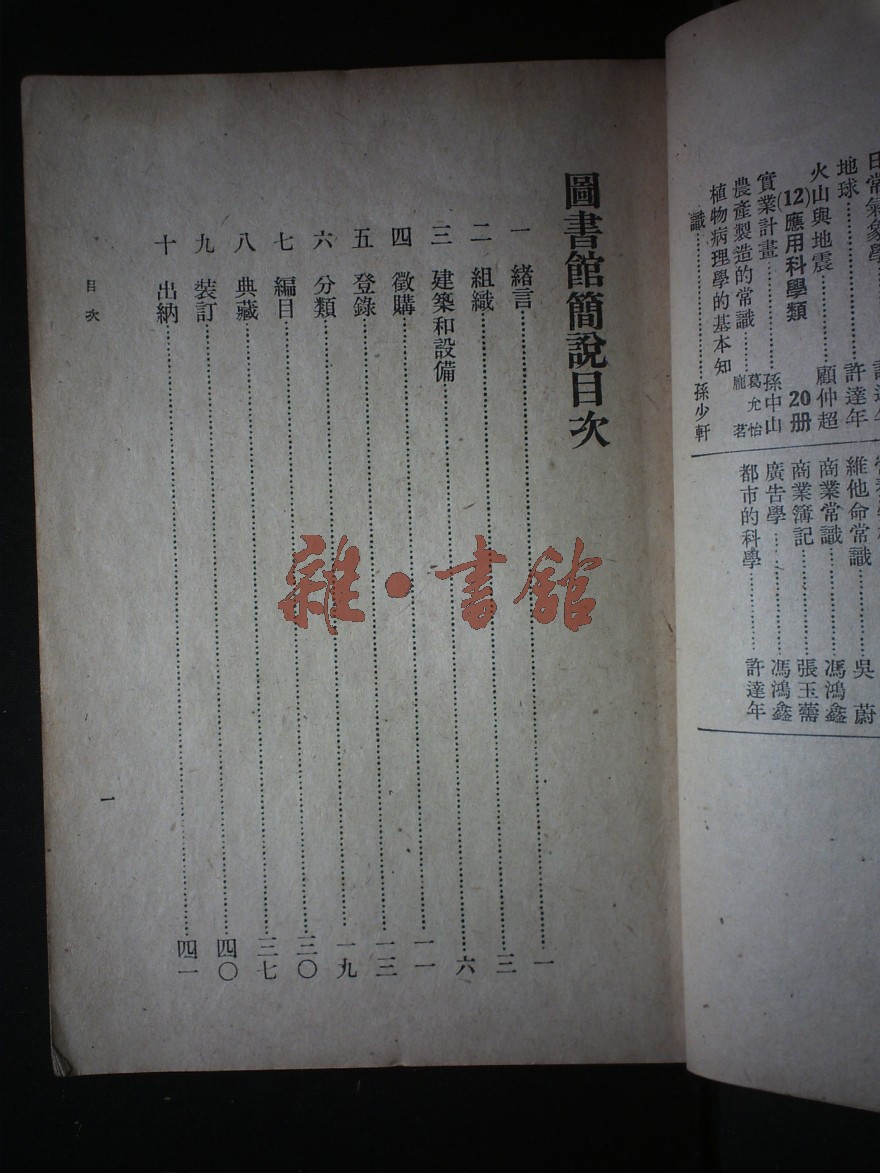 地球……………許達年
火山與地震……顧仲超
(12)應用科學類 20册
實業計畫…………孫中山
農產製造的常識…葛允怡 龐 著
植物病理學的基本知
識……………………孫少軒
維他命常識………吳 蔚
商業常識…………馮鴻鑫
商業簿記…………張玉
廣告學……………馮鴻鑫
都市的科學………許達年
圖書館簡說目次
一 緒言……………一
二 組織……………三
三 建築和設備……六
四 徵購……………一一
五 登錄……………一三
六 分類……………一九
七 編目……………三〇
八 典藏……………三七
九 裝訂……………四〇
十 出納……………四一
目次
一
雜·書館